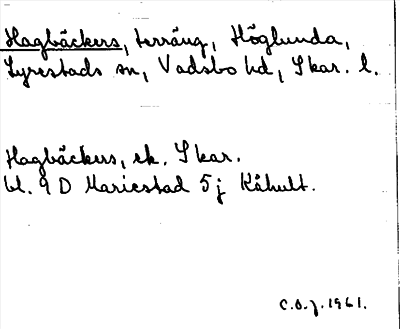 Hagbäckers, terräng, Höglunda,
Lyrestads sn, Vadsbo hd, Skar. l.
Hagbäckers, ek. Skar.
bl. 9 D Mariestad 5j Kåhult.
C.O.J. 1961.